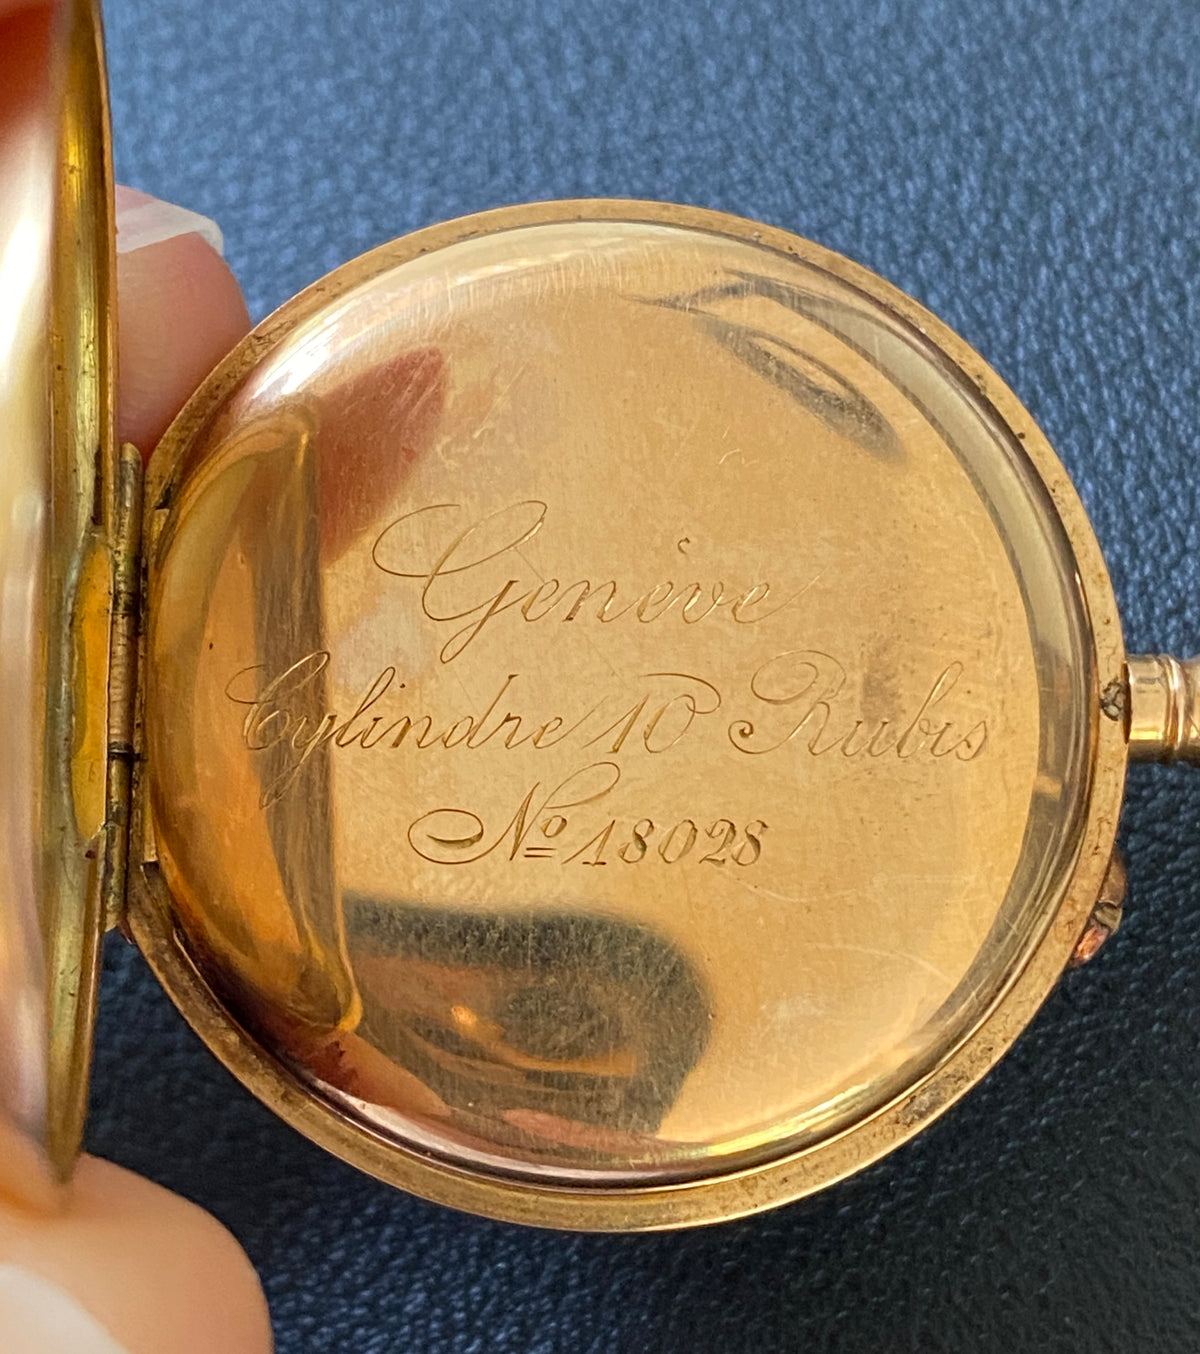 Genève
Cylindre 10 Rubis
Nº 18028